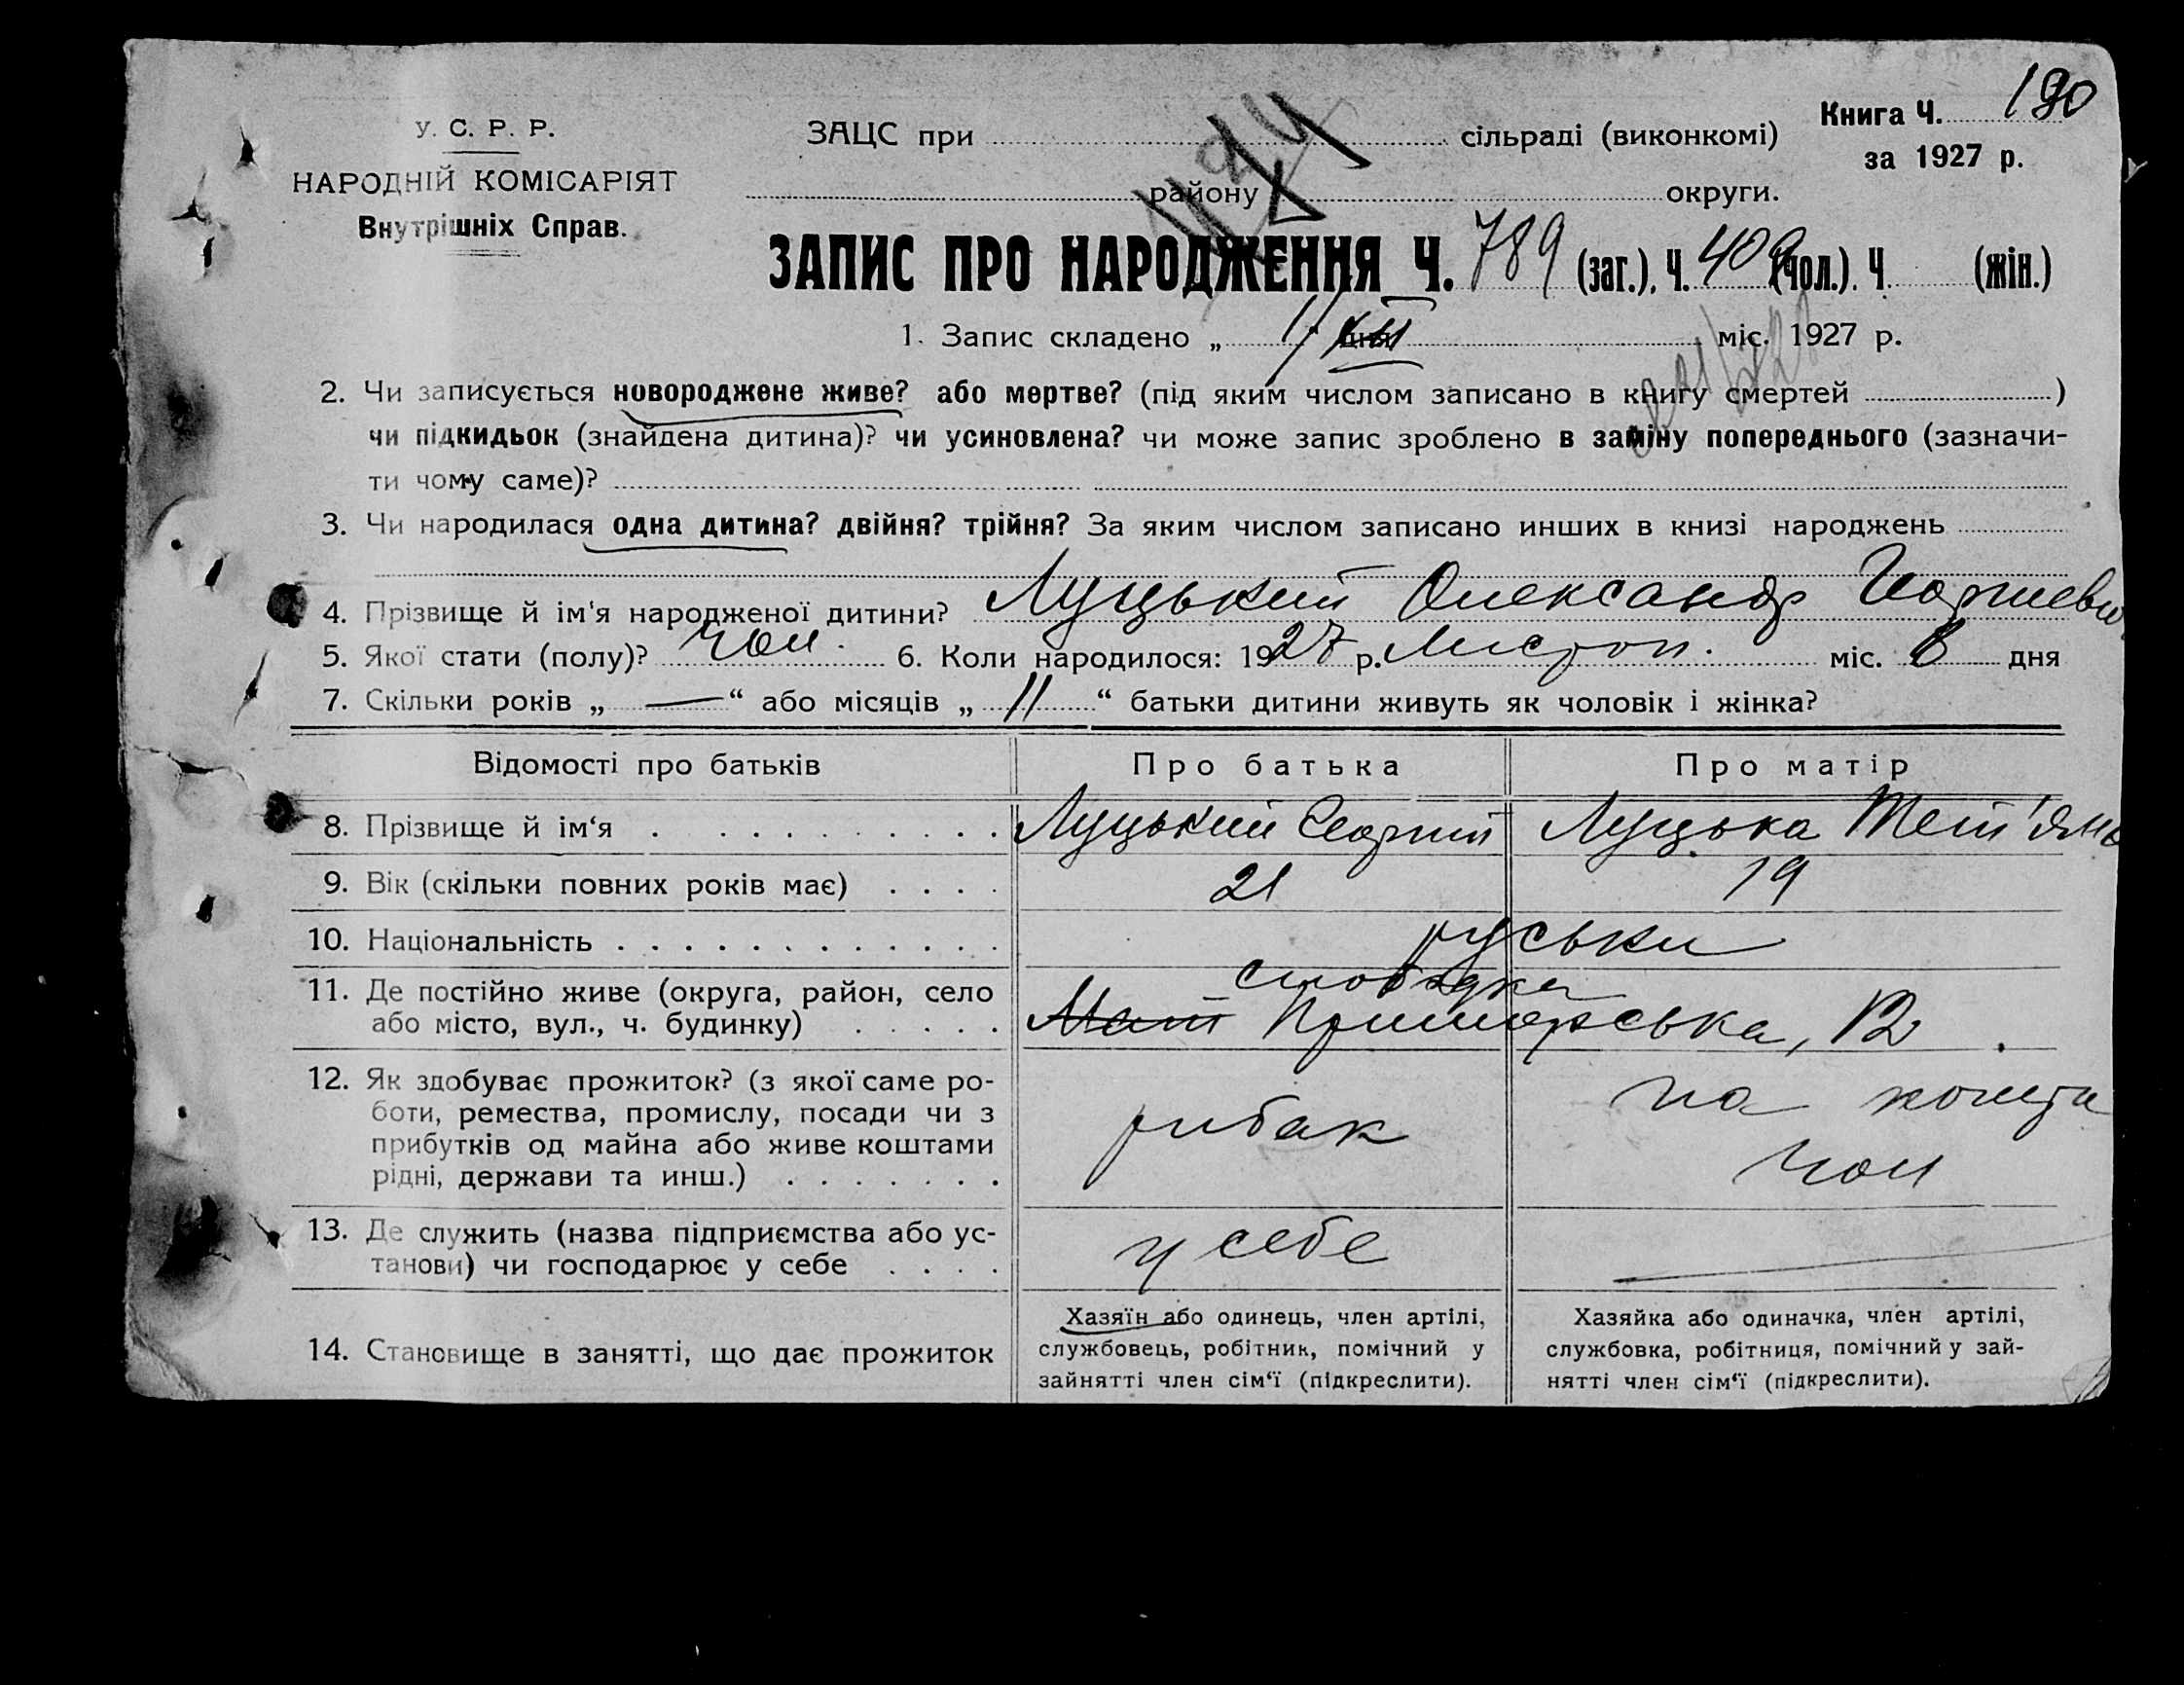 190
У. С. Р. Р.
НАРОДНІЙ КОМІСАРІЯТ
Внутрішніх Справ.
ЗАЦС при сільраді (виконкомі)
району округи.
Книга Ч.
за 1927 р.
ЗАПИС ПРО НАРОДЖЕННЯ Ч. 789 (заг.), Ч. 409 (чол.). Ч. (жін.)
1. Запис складено „ 17 “ дня XII міс. 1927 р.
2. Чи записується новороджене живе? або мертве? (під яким числом записано в книгу смертей )
чи підкидьок (знайдена дитина)? чи усиновлена? чи може запис зроблено в заміну попереднього (зазначи-
ти чому саме)?
3. Чи народилася одна дитина? двійня? трійня? За яким числом записано инших в книзі народжень
4. Прізвище й ім'я народженої дитини? Луцький Олександр Георгиевич
5. Якої стати (полу)? чол. 6. Коли народилося: 1927 р. Листоп. міс. 8 дня
7. Скільки років „ — “ або місяців „ 11 “ батьки дитини живуть як чоловік і жінка?
Відомості про батьків Про батька Про матір
8. Прізвище й ім‘я Луцький Георгий Луцька Тет'яна
9. Вік (скільки повних років має) 21 19
10. Національність руськи
11. Де постійно живе (округа, район, село
або місто, вул., ч. будинку)
слобідка
Приморська, 12
12. Як здобуває прожиток? (з якої саме ро-
боти, ремества, промислу, посади чи з
прибутків од майна або живе коштами
рідні, держави та инш.)
рибак
на кошти
чол
13. Де служить (назва підприємства або ус-
танови) чи господарює у себе
у себе
14. Становище в занятті, що дає прожиток
Хазяїн або одинець, член артілі,
службовець, робітник, помічний у
зайнятті член сім‘ї (підкреслити).
Хазяйка або одиначка, член артілі,
службовка, робітниця, помічний у зай-
нятті член сім‘ї (підкреслити).